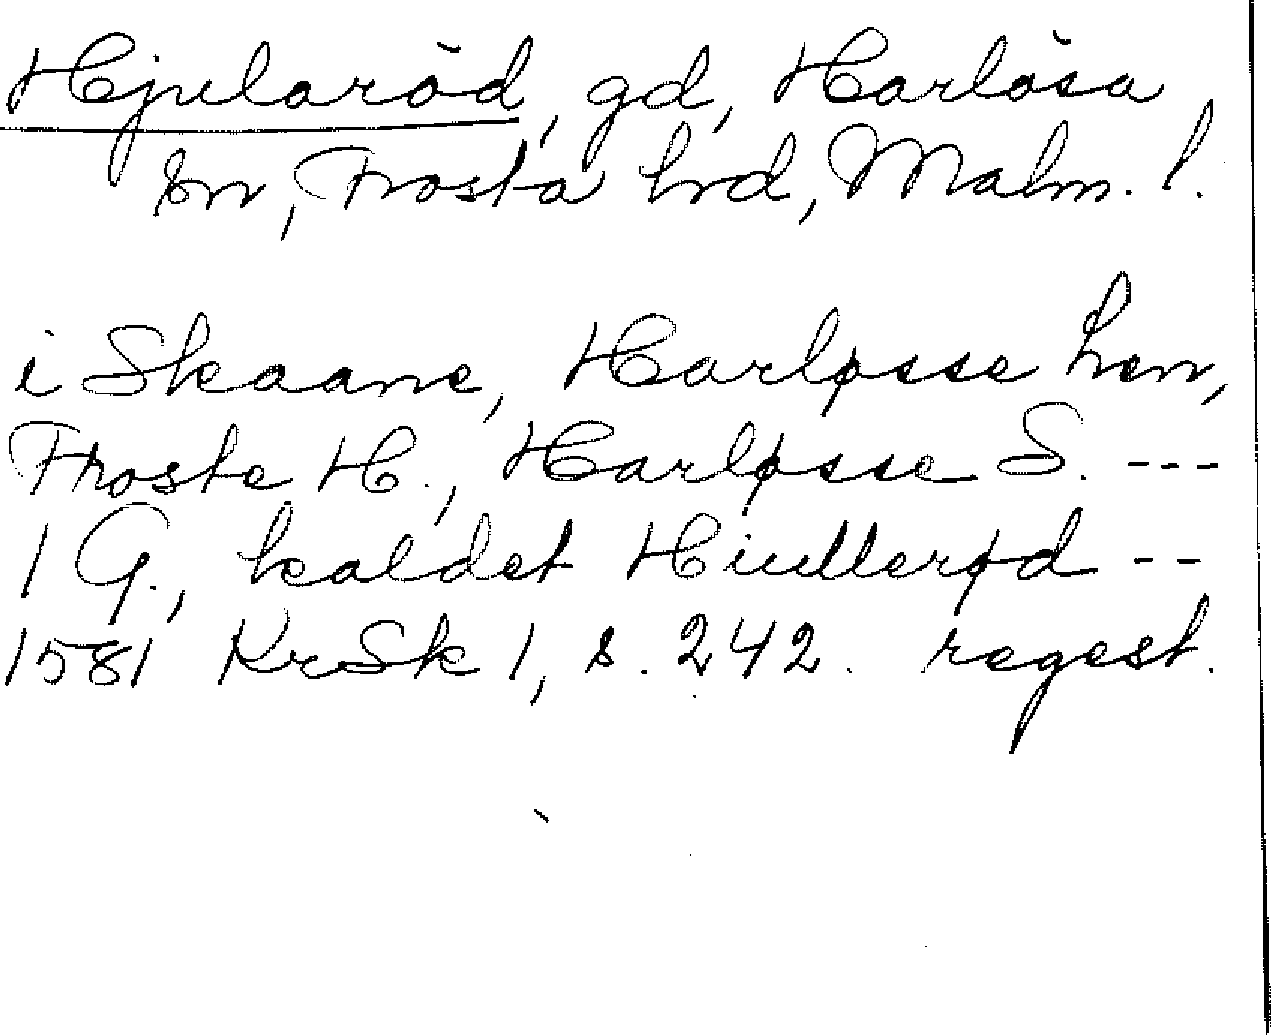 Hjularöd, gd, Harlösa
sn, Frosta hrd, Malm. l.
i Skaane, Harløsse Len,
Froste H., Harløsse S. ---
1 G., kaldet Hiullerød --
1581 KrSk 1, s. 242. regest.